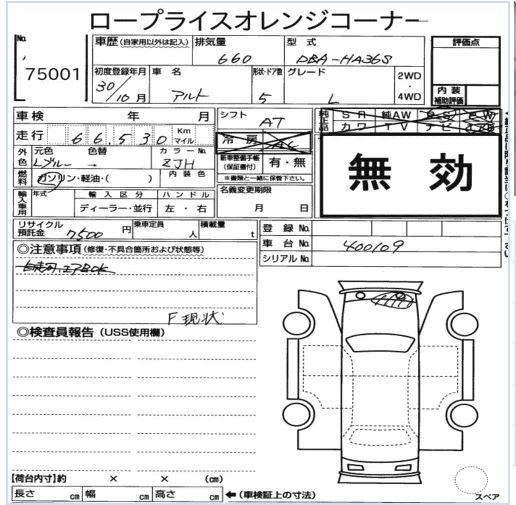 ロープライスオレンジコーナー
No. 75001
車歴 (自家用以外は記入) 排気量 660 型式 DBA-HA36S 評価点
初度登録年月 30/10月 車名 アルト 形状・ドア数 5 グレード L 2WD・4WD
内装補助評価
車検 年 月 シフト AT 純正品 SR 純AW PS PW
走行 66,530 Km マイル 冷房 AC カワ TV ナビ
外色 元色 Lブルー 色替 → カラーNo. ZJH 新車整備手帳(保証書付) 有・無
※書類と一緒に保管下さい。
燃料 ガソリン・軽油・( ) 内装色 名義変更期限
月 日
無効
輸入車用 年式 輸入区分 ディーラー・並行 ハンドル 左・右
リサイクル預託金 7500円 乗車定員 人 積載量 t 登録No.
車台No. 400109
シリアルNo.
◎注意事項 (修復・不具合箇所および状態等)
F現状
◎検査員報告 (USS使用欄)
【荷台内寸】約 × × (cm)
長さ cm 幅 cm 高さ cm ←(車検証上の寸法)
スペア